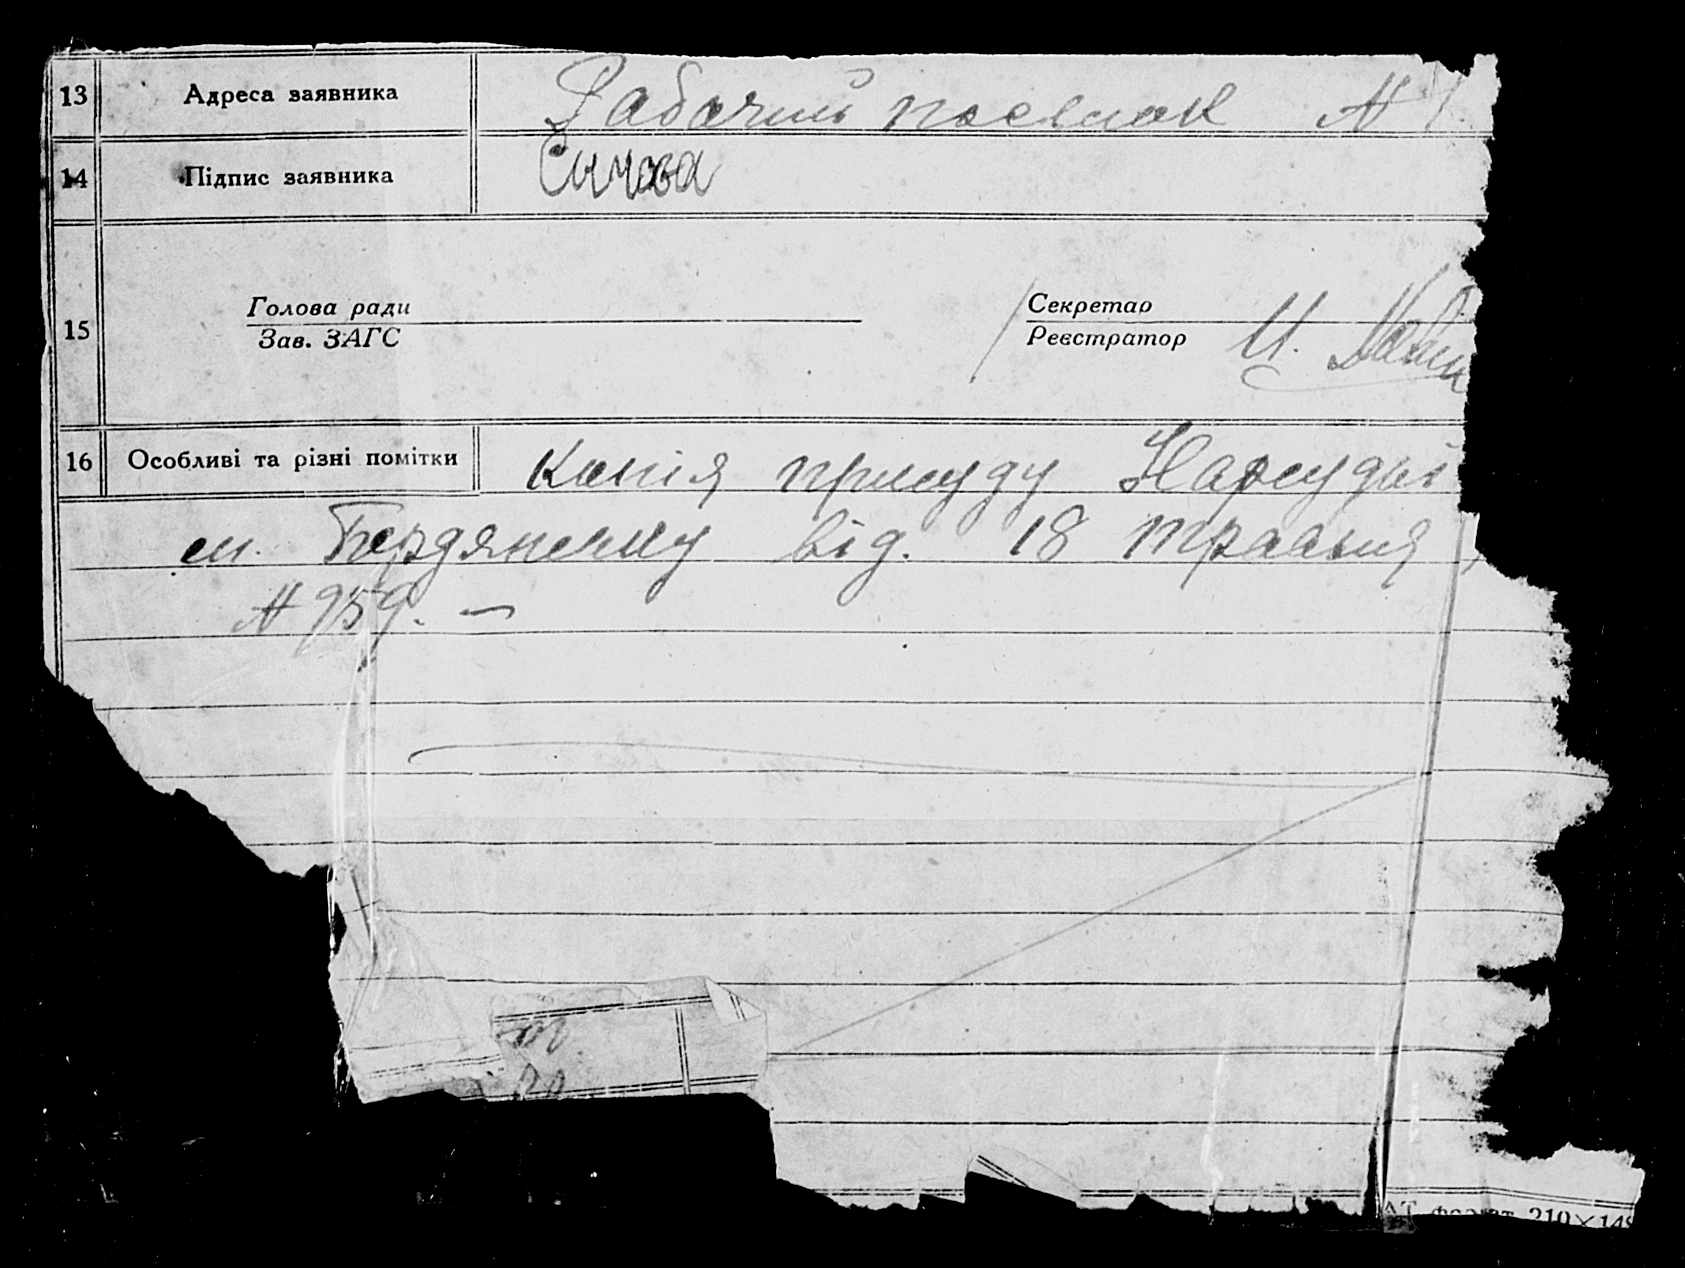 13 Адреса заявника Рабочий поселок № 1
14 Підпис заявника
Голова ради Секретар
15
Зав. ЗАГС Реєстратор И.
16 Особливі та різні помітки Копія присуду Нарсуду
м. Бердянську від. 18 травня
№ 959. —
формат 210×148